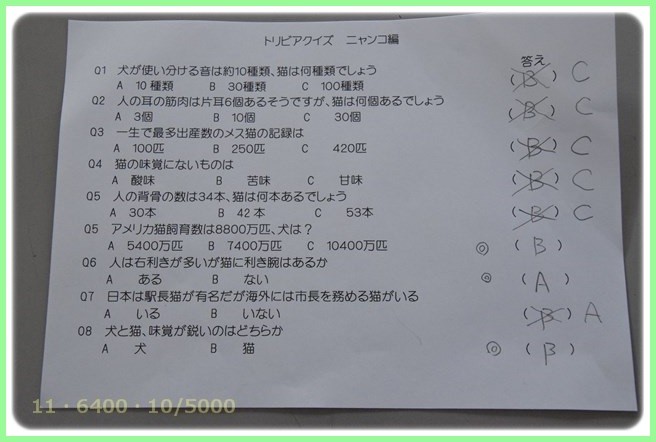 トリビアクイズ　ニャンコ編
答え
Q1　犬が使い分ける音は約10種類、猫は何種類でしょう
A　10種類　B　30種類　C　100種類　(B) C
Q2　人の耳の筋肉は片耳6個あるそうですが、猫は何個あるでしょう
A　3個　B　10個　C　30個　(B) C
Q3　一生で最多出産数のメス猫の記録は
A　100匹　B　250匹　C　420匹　(B) C
Q4　猫の味覚にないものは
A　酸味　B　苦味　C　甘味　(B) C
Q5　人の背骨の数は34本、猫は何本あるでしょう
A　30本　B　42本　C　53本　(B) C
Q5　アメリカ猫飼育数は8800万匹、犬は？
A　5400万匹　B　7400万匹　C　10400万匹　◎ (B)
Q6　人は右利きが多いが猫に利き腕はあるか
A　ある　B　ない　◎ (A)
Q7　日本は駅長猫が有名だが海外には市長を務める猫がいる
A　いる　B　いない　(B) A
Q8　犬と猫、味覚が鋭いのはどちらか
A　犬　B　猫　◎ (B)
11・6400・10/5000